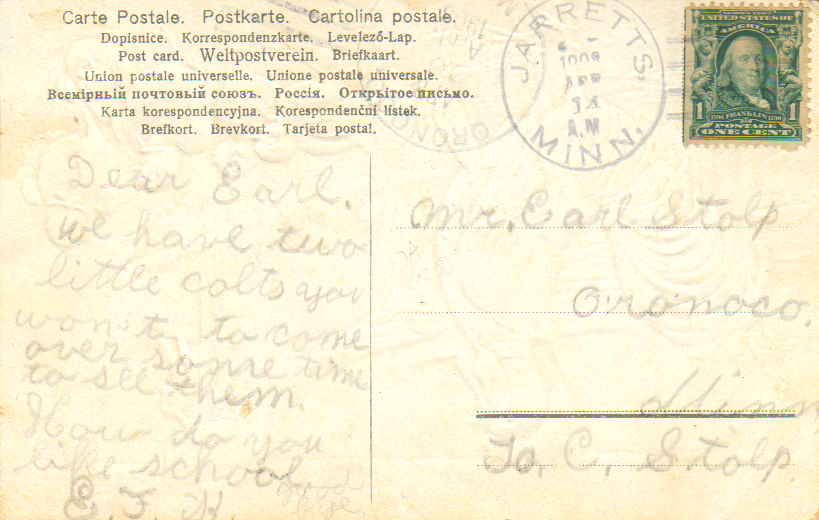 Carte Postale. Postkarte. Cartolina postale.
Dopisnice. Korrespondenzkarte. Levelező-Lap.
Post card. Weltpostverein. Briefkaart.
Union postale universelle. Unione postale universale.
Всемірный почтовый союзъ. Россія. Открытое письмо.
Karta korespondencyjna. Korespondenční lístek.
Brefkort. Brevkort. Tarjeta postal.
JARRETTS,
APR
A.M
MINN.
UNITED STATES OF
AMERICA
FRANKLIN
1 POSTAGE 1
ONE CENT
Dear Earl.
We have two
little colts you
won't to come
over some time
to see them.
How do you
like school
good
bye
E. F. K.
Mr. Earl Stolp
Oronoco.
Minn
To, C, Stolp.